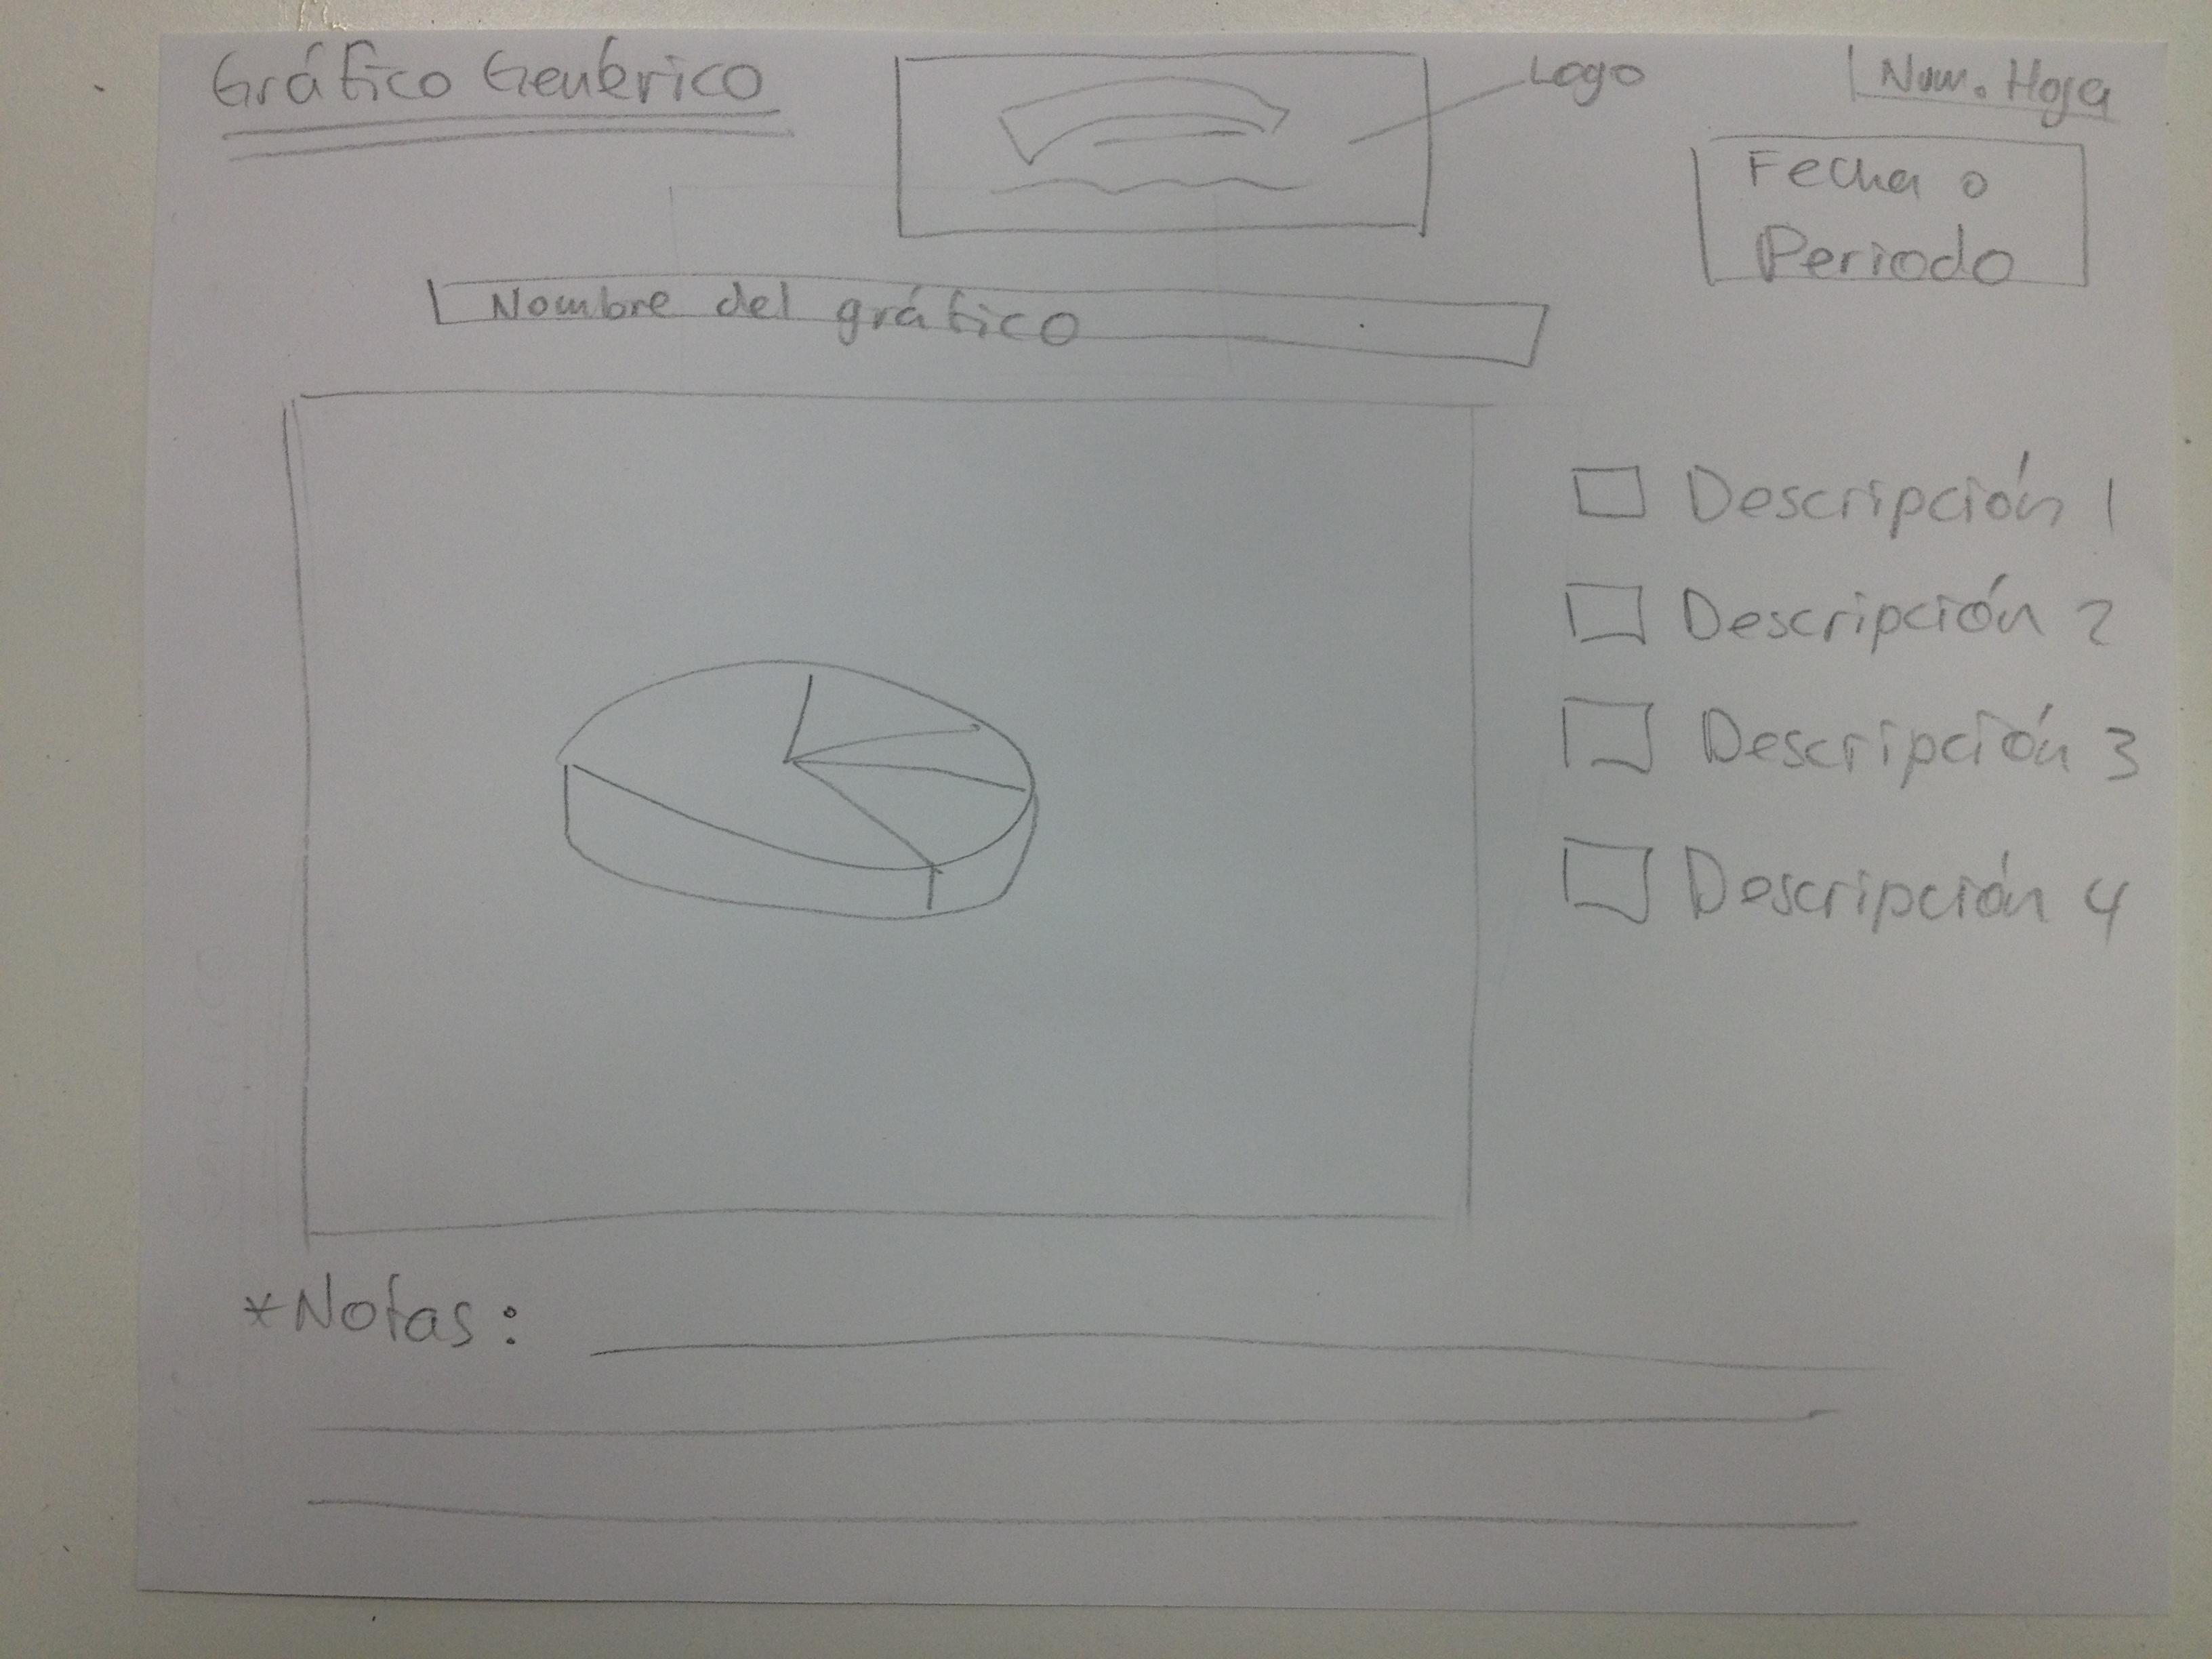 Gráfico Genérico
Logo
Num. Hoja
Fecha o
Periodo
Nombre del gráfico
Descripción 1
Descripción 2
Descripción 3
Descripción 4
*Notas: